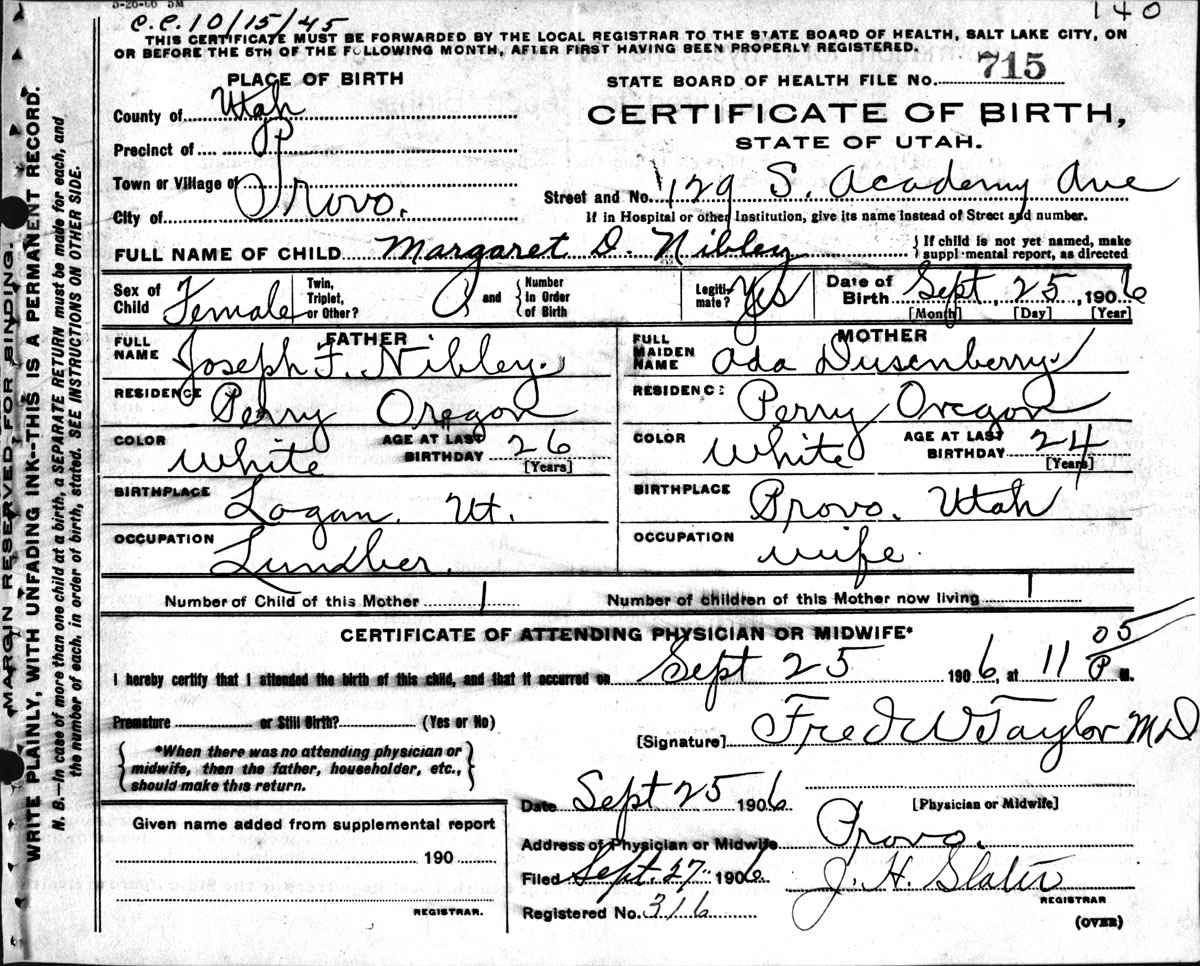 5-26-06 5M
C.C. 10/15/45
140
THIS CERTIFICATE MUST BE FORWARDED BY THE LOCAL REGISTRAR TO THE STATE BOARD OF HEALTH, SALT LAKE CITY, ON
OR BEFORE THE 5TH OF THE FOLLOWING MONTH, AFTER FIRST HAVING BEEN PROPERLY REGISTERED.
PLACE OF BIRTH
County of Utah
Precinct of
Town or Village of
City of Provo.
STATE BOARD OF HEALTH FILE NO. 715
CERTIFICATE OF BIRTH,
STATE OF UTAH.
Street and No. 129 S. Academy Ave
If in Hospital or other Institution, give its name instead of Street and number.
FULL NAME OF CHILD Margaret D. Nibley
{ If child is not yet named, make
suppl-mental report, as directed
Sex of Child Female
Twin, Triplet, or Other?
and { Number in Order of Birth
Legiti-mate? Yes
Date of Birth Sept, 25, 1906
[Month] [Day] [Year]
FATHER
FULL NAME Joseph F. Nibley.
RESIDENCE Perry Oregon
COLOR White AGE AT LAST BIRTHDAY 26
[Years]
BIRTHPLACE Logan. Ut.
OCCUPATION Lundber.
MOTHER
FULL MAIDEN NAME Ada Dusenberry.
RESIDENC: Perry Oregon
COLOR White AGE AT LAST BIRTHDAY 24
[Years]
BIRTHPLACE Provo. Utah
OCCUPATION wife.
Number of Child of this Mother 1 Number of children of this Mother now living 1
CERTIFICATE OF ATTENDING PHYSICIAN OR MIDWIFE*
I hereby certify that I attended the birth of this child, and that it occurred on Sept 25 1906, at 11 05 P M.
Premature or Still Birth? (Yes or No)
{ *When there was no attending physician or
midwife, then the father, householder, etc.,
should make this return. }
[Signature] Fred W Taylor MD
Date Sept 25 1906
[Physician or Midwife]
Address of Physician or Midwife Provo.
Filed Sept. 27 1906 J. H. Slater
REGISTRAR
Registered No. 316
(OVER)
Given name added from supplemental report
190
REGISTRAR.
MARGIN RESERVED FOR BINDING.
WRITE PLAINLY, WITH UNFADING INK--THIS IS A PERMANENT RECORD.
N. B.—In case of more than one child at a birth, a SEPARATE RETURN must be made for each, and
the number of each, in order of birth, stated. SEE INSTRUCTIONS ON OTHER SIDE.